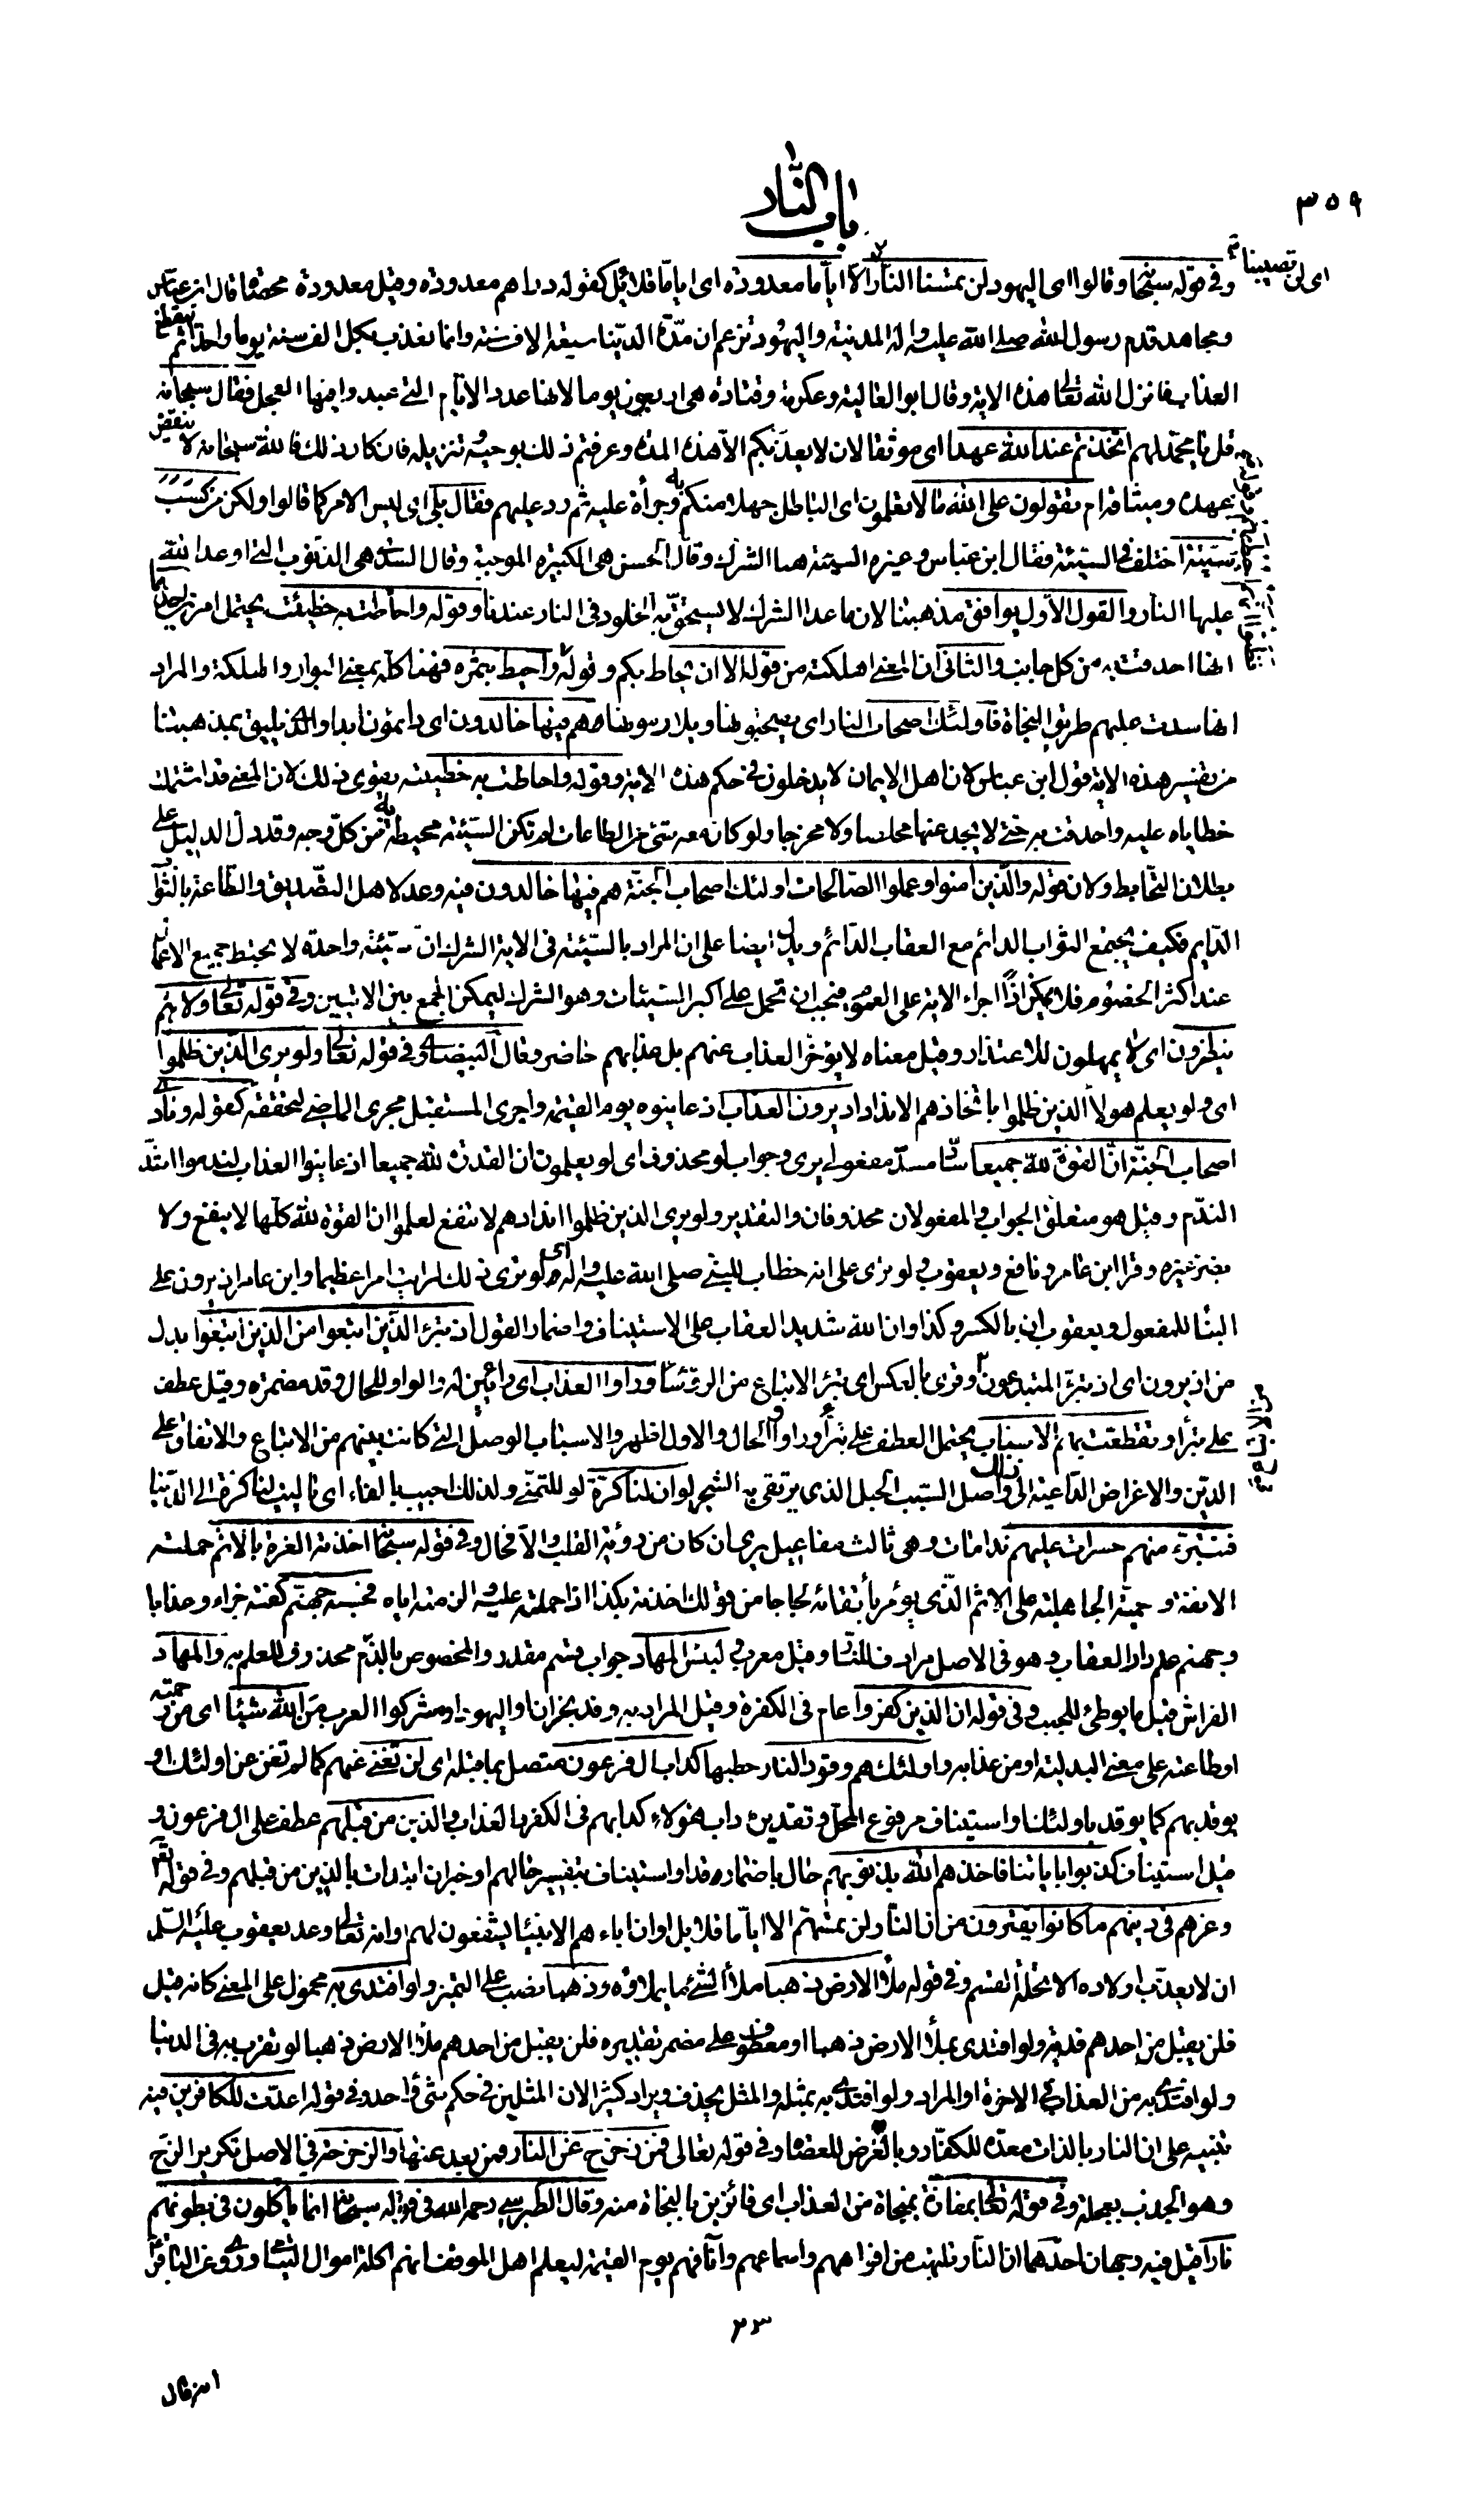 ٣٥٩
باب النار
وفي قوله سبحانه وقالوا اى اليهود لن تمسنا النار اى لن تصيبنا الا اياما معدودة اى اياما قلائل كقوله دراهم معدودة وقيل معدودة محصاة قال ابن عباس
ومجاهد قدم رسول الله صلى الله عليه واله المدينة واليهود تزعم ان مدة الدنيا سبعة الاف سنة وانما نعذب بكل الف سنة يوما واحدا ثم ينقطع
العذاب فانزل الله تعالى هذه الاية وقال ابو العالية وعكرمة وقتادة هي اربعون يوما لانها عدد الايام التي عبدوا فيها العجل فقال سبحانه
قل يا محمد لهم اتخذتم عند الله عهدا اى موثقا لان لا يعذبكم الا هذه المدة وعرفتم ذلك بوحيه وتنزيله فان كان ذلك فالله سبحانه لا ينقض
عهده وميثاقه ام تقولون على الله ما لا تعلمون اى الباطل جهلا منكم به وجرأة عليه ثم رد عليهم فقال بلى اى ليس الامر كما قالوا ولكن من كسب
سيئة اختلف في السيئة فقال ابن عباس وغيره السيئة هنا الشرك وقال الحسن هي الكبيرة الموجبة وقال السدي هي الذنوب التي اوعد الله
عليها النار والقول الاول يوافق مذهبنا لان ما عدا الشرك لا يستحق به الخلود في النار عندنا وقوله واحاطت به خطيئته يحتمل امرين احدهما
انها احدقت به من كل جانب والثاني ان المعنى اهلكته من قوله الا ان يحاط بكم وقوله واحيط بثمره فهذا كله بمعنى البوار والهلكة والمراد
انها سدت عليهم طريق النجاة فاولئك اصحاب النار اى يصحبونها ويلازمونها هم فيها خالدون اى دائمون ابدا والذي يليق بمذهبنا
من تفسير هذه الاية قول ابن عباس لان اهل الايمان لا يدخلون في حكم هذه الاية وقوله واحاطت به خطيئته يقوي ذلك لان المعنى قد اشتملت
خطاياه عليه واحدقت به حتى لا يجد عنها مخلصا ولا مخرجا ولو كان معه شئ من الطاعات لم تكن السيئة محيطة به من كل وجه وقد دل الدليل على
بطلان التحابط ولان قوله والذين امنوا وعملوا الصالحات اولئك اصحاب الجنة هم فيها خالدون فيه وعد لاهل التصديق والطاعة بالثواب
الدايم فكيف يجتمع الثواب الدائم مع العقاب الدائم ويدل ايضا على ان المراد بالسيئة في الاية الشرك ان سيئة واحدة لا تحبط جميع الاعمال
عند اكثر الخصوم فلا يمكن اذا اجراء الاية على العموم فيجب ان تحمل على اكبر السيئات وهو الشرك ليمكن الجمع بين الايتين وفي قوله تعالى ولا هم
ينظرون اى لا يمهلون للاعتذار وقيل معناه لا يؤخر العذاب عنهم بل عذابهم حاضر وقال البيضاوى في قوله تعالى ولو يرى الذين ظلموا
اى ولو يعلم هولاء الذين ظلموا باتخاذهم الانداد اذ يرون العذاب اذ عاينوه يوم القيمة واجرى المستقبل مجرى الماضي لتحققه كقوله ونادى
اصحاب الجنة ان القوة لله جميعا ساد مسد مفعولى يرى وجواب لو محذوف اى لو يعلمون ان القدرة لله جميعا اذ عاينوا العذاب لندموا اشد
الندم وقيل هو متعلق الجواب والمفعولان محذوفان والتقدير ولو يرى الذين ظلموا اندادهم لا تنفع لعلموا ان القوة لله كلها لا ينفع ولا
يضر غيره وقرا ابن عامر ونافع ويعقوب ولو ترى على انه خطاب للنبي صلى الله عليه واله اى ولو ترى ذلك لرايت امرا عظيما وابن عامر اذ يرون على
البناء للمفعول ويعقوب ان بالكسر وكذا وان الله شديد العقاب على الاستيناف واضمار القول اذ تبرء الذين اتبعوا من الذين اتبعوا بدل
من اذ يرون اى اذ تبرأ المتبوعون وقرئ بالعكس اى تبرء الاتباع من الرؤساء وراوا العذاب اى رائين له والواو للحال وقد مضمرة وقيل عطف
على تبرأ وتقطعت بهم الاسباب يحتمل العطف على تبرأ وراوا والحال والاول اظهر والاسباب الوصل التي كانت بينهم من الاتباع والاتفاق على
الدين والاغراض الداعية الى ذلك واصل السبب الحبل الذي يرتقى به الشجر لو ان لنا كرة لو للتمني ولذلك اجيب بالفاء اى يا ليت لنا كرة الى الدنيا
فنتبرء منهم حسرات عليهم ندامات وهي ثالث مفاعيل يرى ان كان من رؤية القلب والا فحال وفي قوله سبحانه اخذته العزة بالاثم حملته
الانفة وحمية الجاهلية على الاثم الذي يؤمر باتقائه لجاجا من قولك اخذته بكذا اذا حملته عليه والزمته اياه فحسبه جهنم كفته جزاء وعذابا
وجهنم علم دار العقاب وهو في الاصل مرادف للنار وقيل معرب ولبئس المهاد جواب قسم مقدر والمخصوص بالذم محذوف للعلم به والمهاد
الفراش وقيل ما يوطئ للجنب وفي قوله ان الذين كفروا عام في الكفرة وقيل المراد به وفد نجران او اليهود او مشركوا العرب من الله شيئا اى من رحمته
او طاعته على معنى البدلية او من عذابه واولئك هم وقود النار حطبها كداب ال فرعون متصل بما قبله اى لن تغني عنهم كما لم تغن عن اولئك او
يوقد بهم كما يوقد باولئك او استيناف مرفوع المحل وتقديره داب هولاء كدابهم في الكفر والعذاب والذين من قبلهم عطف على ال فرعون و
قيل استيناف كذبوا باياتنا فاخذهم الله بذنوبهم حال باضمار قد او استيناف بتفسير حالهم او خبر ان ابتدات بالذين من قبلهم وفي قوله تعالى
وغرهم في دينهم ما كانوا يفترون من ان النار لن تمسهم الا اياما قلائل او ان اباءهم الانبياء يشفعون لهم او انه تعالى وعد يعقوب عليه السلم
ان لا يعذب اولاده الا تحلة القسم وفي قوله ملأ الارض ذهبا ملأ الشئ ما يملاؤه وذهبا نصب على التميز ولو افتدى به محمول على المعنى كانه قيل
فلن يقبل من احدهم فدية ولو افتدى بملأ الارض ذهبا او معطوف على مضمر تقديره فلن يقبل من احدهم ملأ الارض ذهبا لو تقرب به في الدنيا
ولو افتدى به من العذاب في الاخرة او المراد ولو افتدى به بمثله والمثل يحذف ويراد كثيرا لان المثلين في حكم شئ واحد وفي قوله اعدت للكافرين فيه
تنبيه على ان النار بالذات معدة للكفار وبالعرض للعصاة وفي قوله تعالى فمن زحزح عن النار فمن بعد عنها والزحزحة في الاصل تكرير الزح
وهو الجذب بعجلة وفي قوله تعالى بمفازة بمنجاة من العذاب اى فائزين بالنجاة منه وقال الطبرسي رحمه الله في قوله سبحانه انما ياكلون في بطونهم
نارا قيل فيه وجهان احدهما ان النار تلتهب من افواههم واسماعهم وآنافهم يوم القيمة ليعلم اهل الموقف انهم اكلة اموال اليتامى وروى عن الباقر
٢٣
انه قال